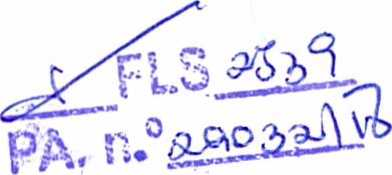 FLS 2539
PA. n.º 29032/17